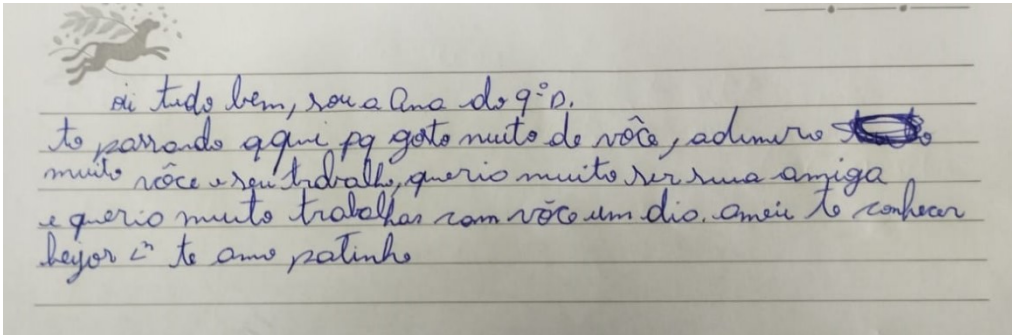 oi tudo bem, sou a Ana do 9º D.
to passando aqui pq gosto muito de vôce, adimiro
muito vôce e seu trabalho, querio muito ser sua amiga
e querio muito trabalhar com vôce um dia. amei te conhecer
beyor te amo patinho